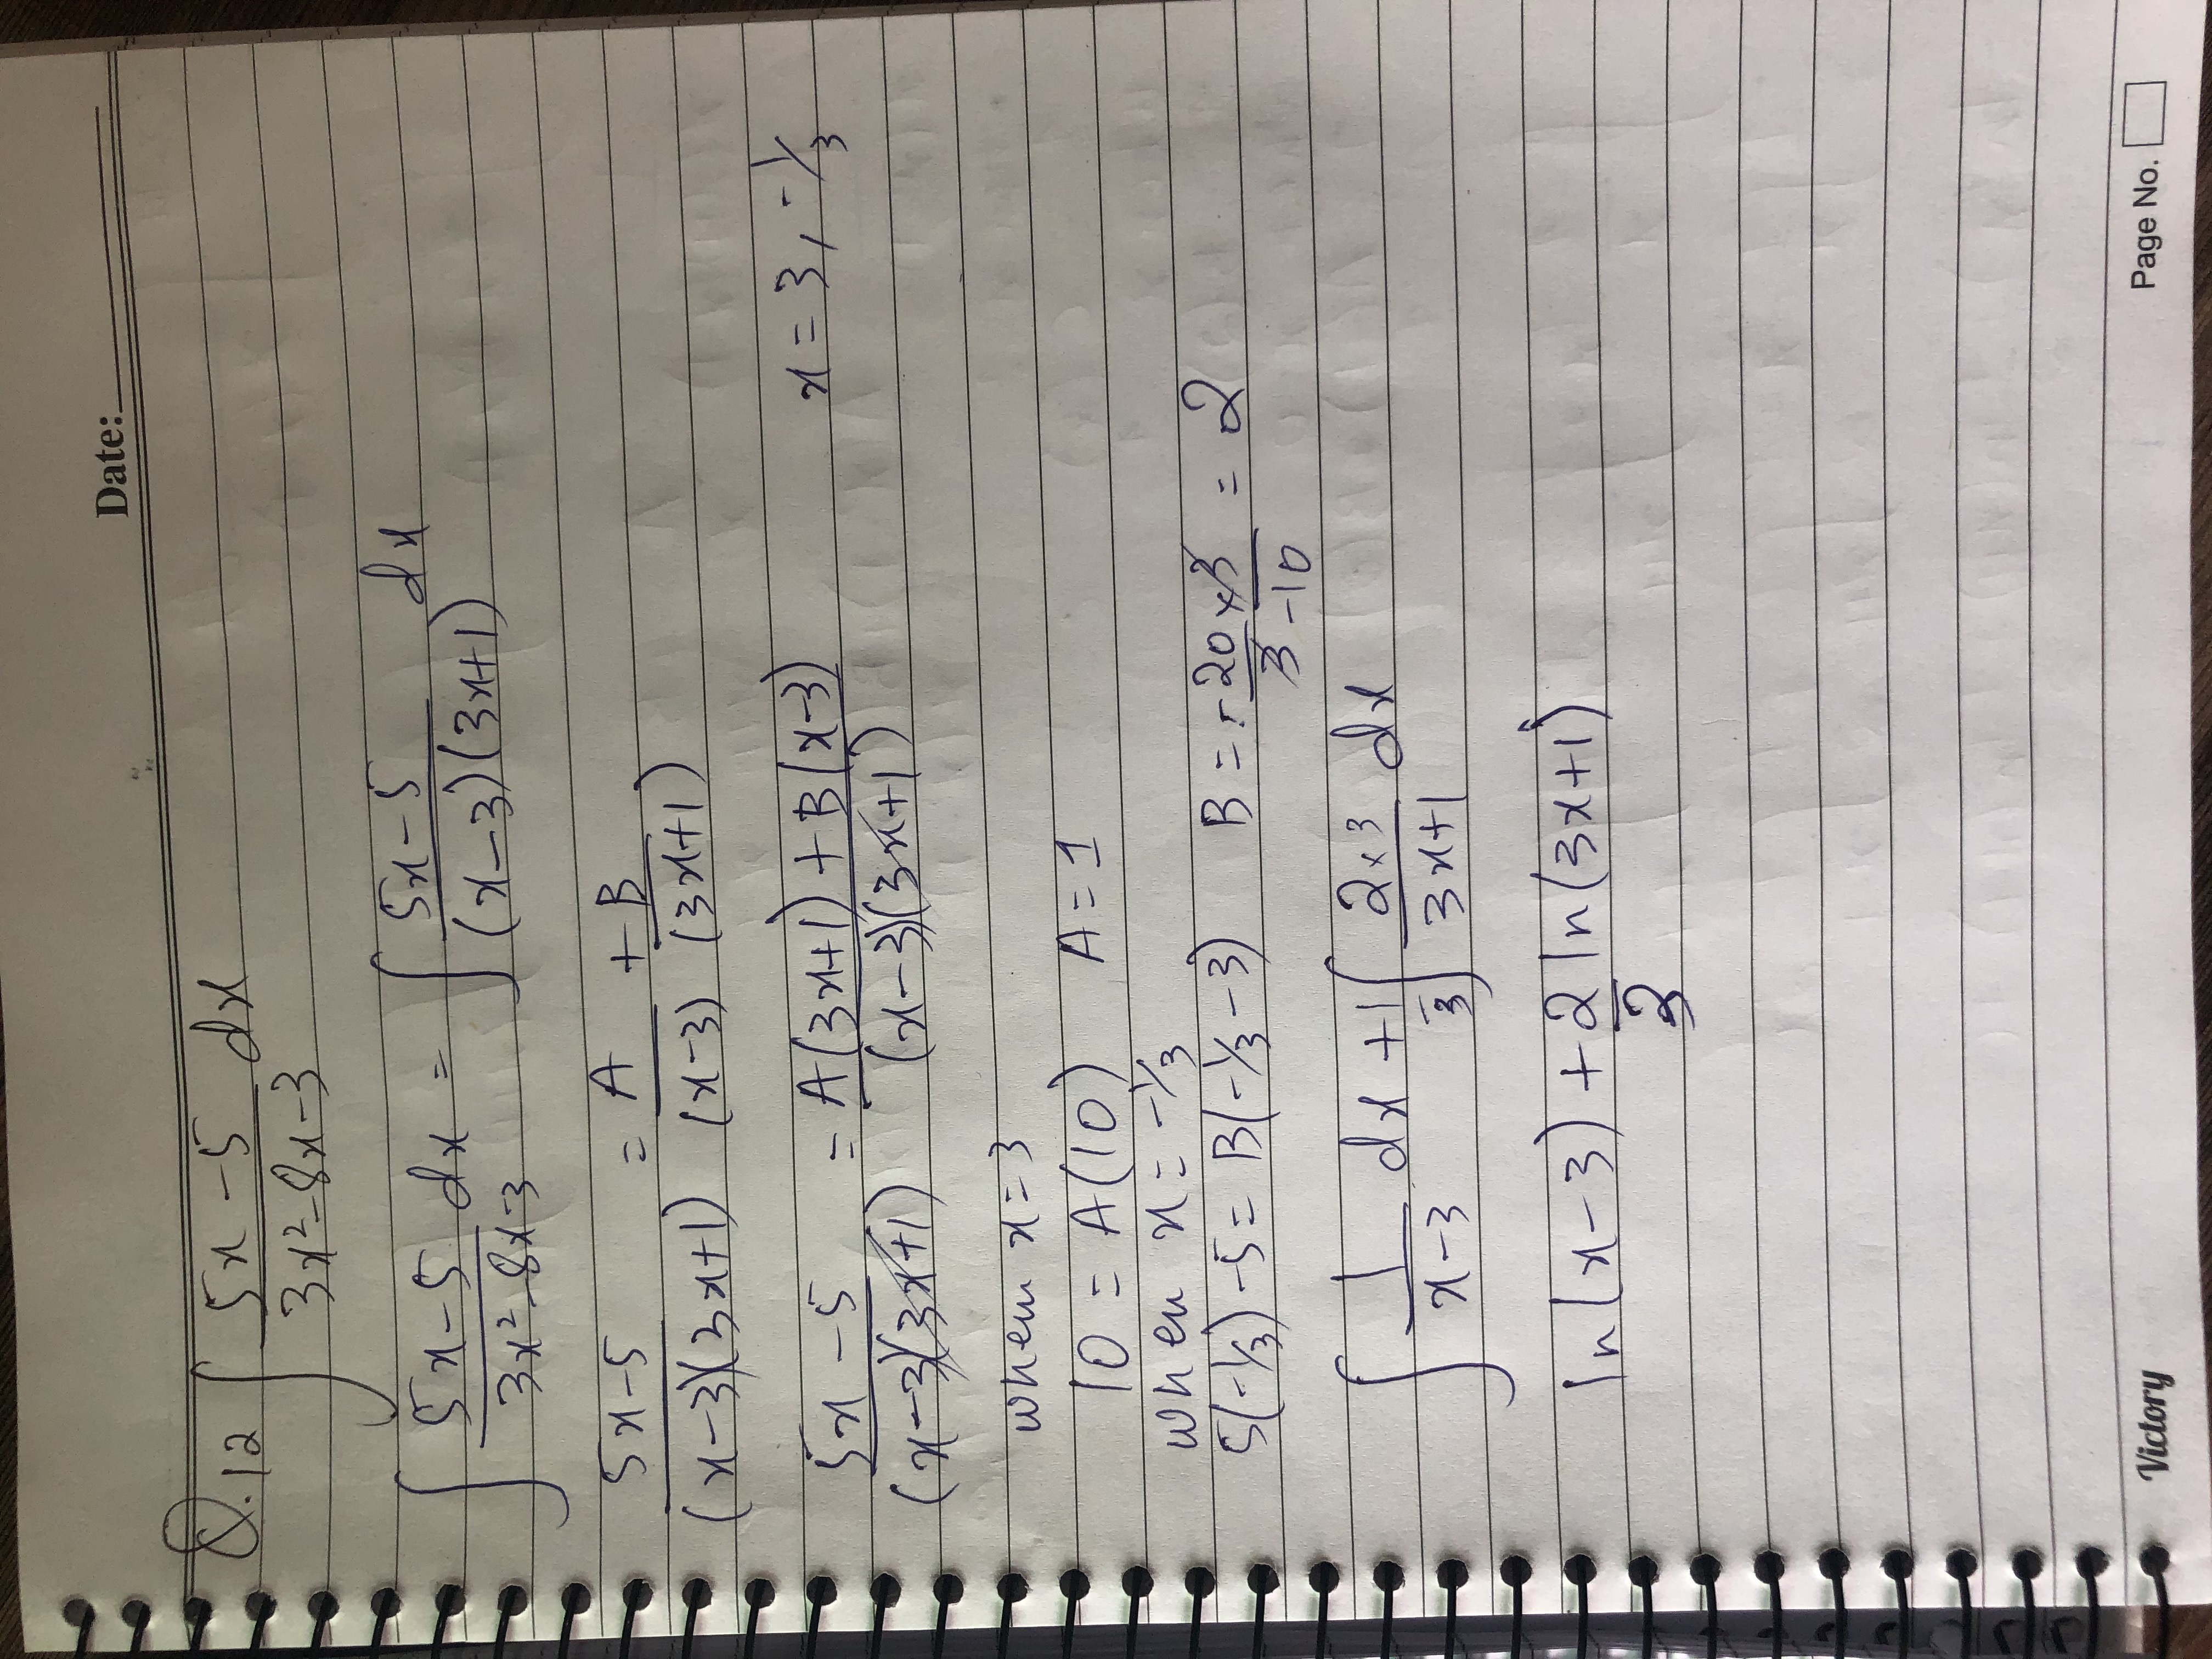 Date:
Q.12 ∫ (5x-5)/(3x²-8x-3) dx
∫ (5x-5)/(3x²-8x-3) dx = ∫ (5x-5)/((x-3)(3x+1)) dx
(5x-5)/((x-3)(3x+1)) = A/(x-3) + B/(3x+1)
(5x-5)/((x-3)(3x+1)) = (A(3x+1)+B(x-3))/((x-3)(3x+1)) x=3, -1/3
when x=3
10 = A(10) A=1
when x=-1/3
5(-1/3)-5 = B(-1/3-3) B = -20/3 × 3/-10 = 2
∫ 1/(x-3) dx + 1/3 ∫ (2×3)/(3x+1) dx
ln(x-3) + 2/3 ln(3x+1)
Victory
Page No.